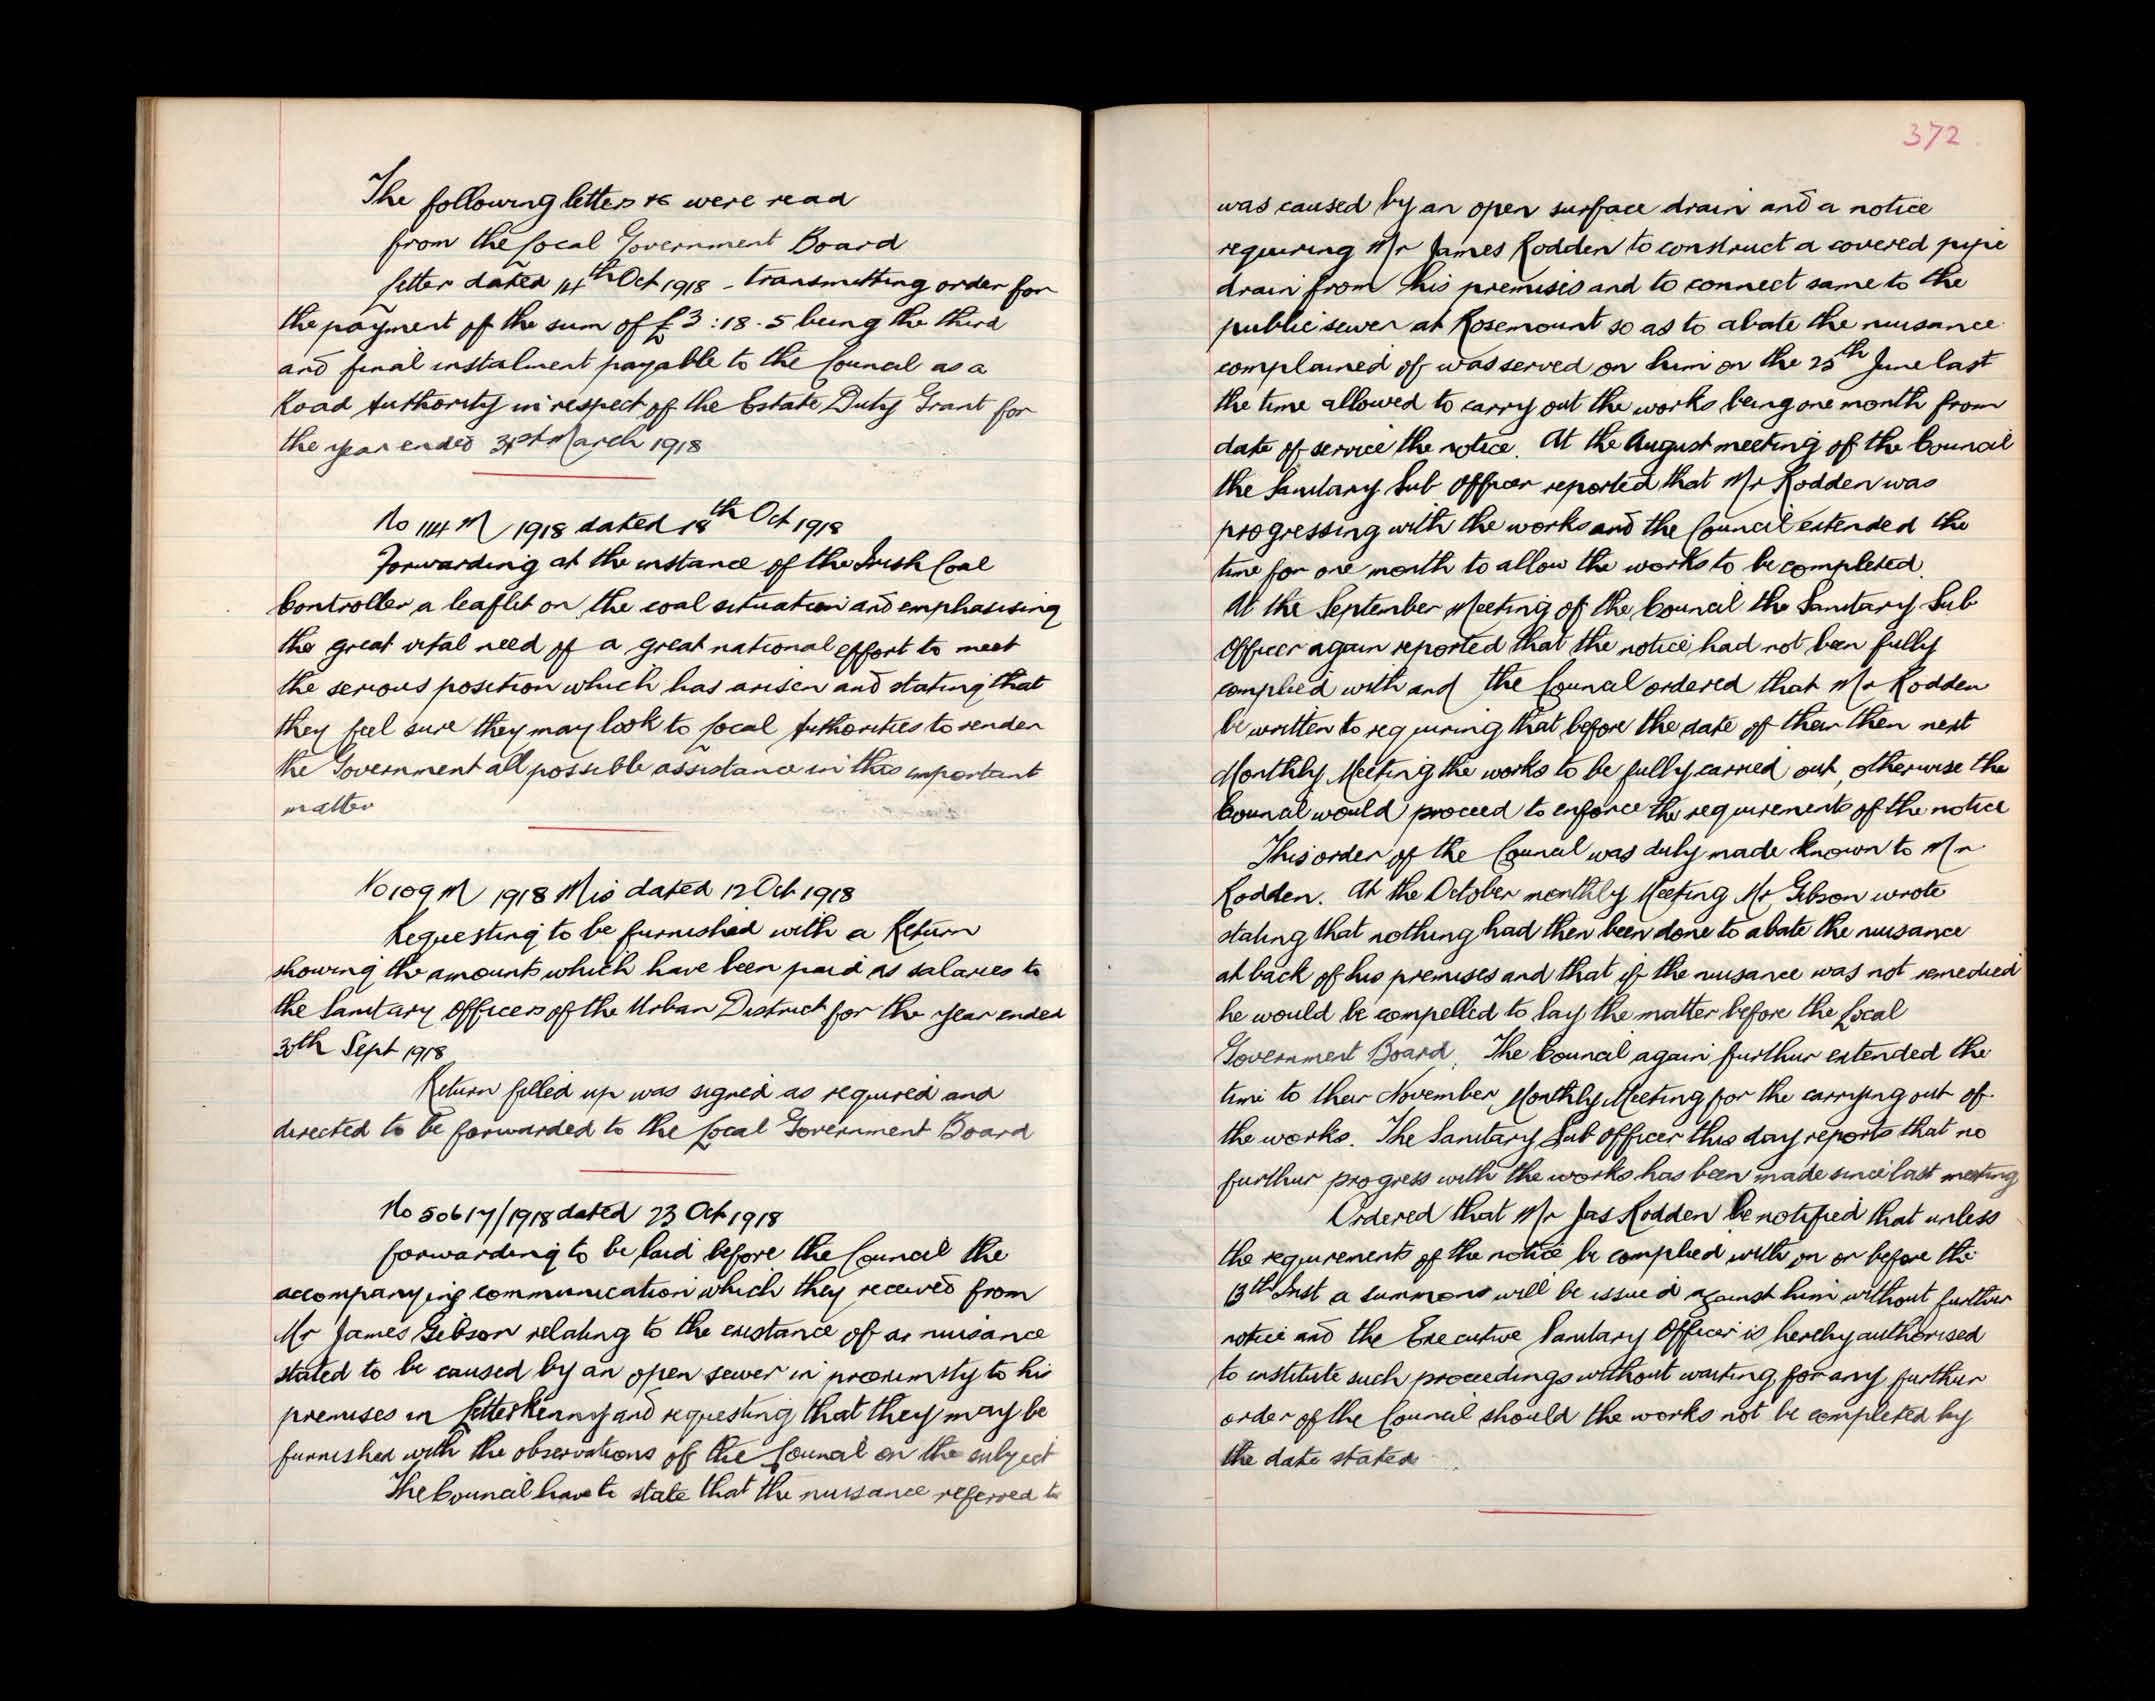 The following letters &c were read
from the Local Government Board
Letter dated 14th Oct 1918 - transmitting order for
the payment of the sum of £3:18.5 being the third
and final instalment payable to the Council as a
Road Authority in respect of the Estate Duty Grant for
the year ended 31st March 1918
No 114 M 1918 dated 18th Oct 1918
Forwarding at the instance of the Irish Coal
Controller a leaflet on the coal situation and emphasising
the great vital need of a great national effort to meet
the serious position which has arisen and stating that
they feel sure they may look to Local Authorities to render
the Government all possible assistance in this important
matter
No 109 M 1918 Mis dated 12 Oct 1918
Requesting to be furnished with a Return
showing the amounts which have been paid as salaries to
the Sanitary Officers of the Urban District for the year ended
30th Sept 1918
Return filled up was signed as required and
directed to be forwarded to the Local Government Board
No 50617/1918 dated 23 Oct 1918
forwarding to be laid before the Council the
accompanying communication which they received from
Mr James Gibson relating to the existance of a nuisance
stated to be caused by an open sewer in proximity to his
premises in Letterkenny and requesting that they may be
furnished with the observations of the Council on the subject
The Council have to state that the nuisance referred to
372
was caused by an open surface drain and a notice
requiring Mr James Rodden to construct a covered pipe
drain from his premises and to connect same to the
public sewer at Rosemount so as to abate the nuisance
complained of was served on him on the 25th June last
the time allowed to carry out the works being one month from
date of service the notice. At the August meeting of the Council
the Sanitary Sub Officer reported that Mr Rodden was
progressing with the works and the Council extended the
time for one month to allow the works to be completed.
At the September Meeting of the Council the Sanitary Sub
Officer again reported that the notice had not been fully
complied with and the Council ordered that Mr Rodden
be written to requiring that before the date of their then next
Monthly Meeting the works to be fully carried out, otherwise the
Council would proceed to enforce the requirements of the notice
This order of the Council was duly made known to Mr
Rodden. At the October monthly Meeting Mr Gibson wrote
stating that nothing had then been done to abate the nuisance
at back of his premises and that if the nuisance was not remedied
he would be compelled to lay the matter before the Local
Government Board. The Council again further extended the
time to their November Monthly Meeting for the carrying out of
the works. The Sanitary Sub Officer this day reports that no
further progress with the works has been made since last meeting
Ordered that Mr Jas Rodden be notified that unless
the requirements of the notice be complied with on or before the
13th Inst a summons will be issued against him without further
notice and the Executive Sanitary Officer is hereby authorised
to institute such proceedings without waiting for any further
order of the Council should the works not be completed by
the date stated